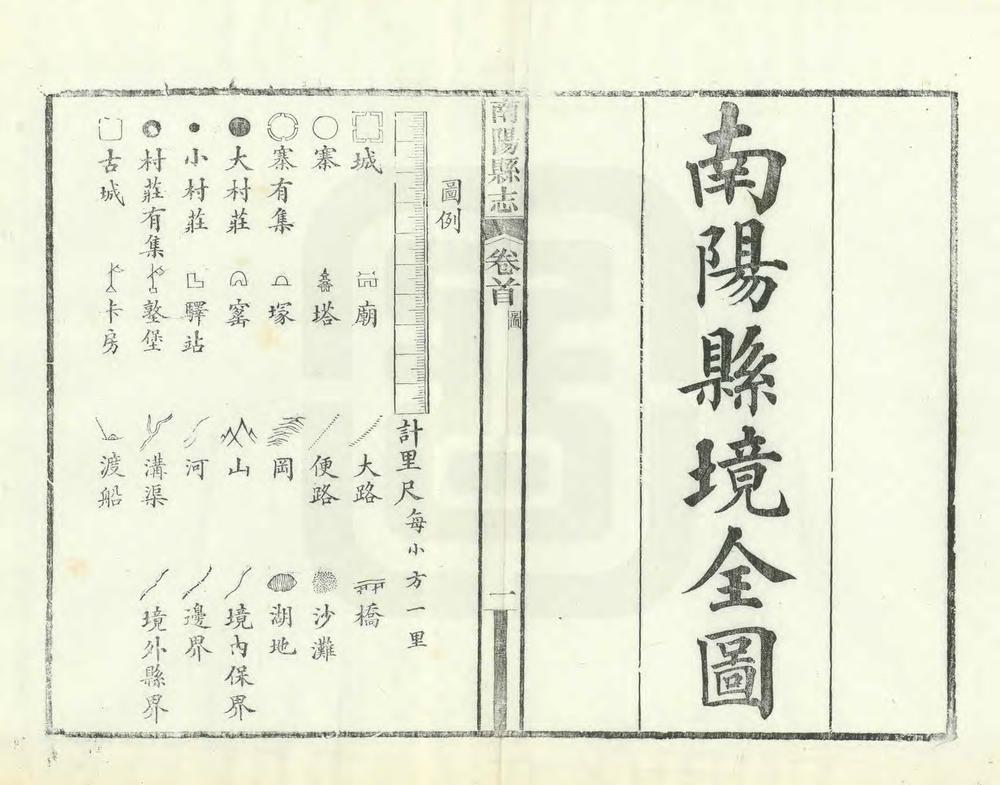 南陽縣境全圖
南陽縣志
卷首
圖
一
圖例
計里尺每小方一里
城
廟
大路
橋
寨
塔
便路
沙灘
寨有集
塚
岡
湖地
大村莊
窰
山
境內保界
小村莊
驛站
河
邊界
村莊有集
墪堡
溝渠
境外縣界
古城
卡房
渡船